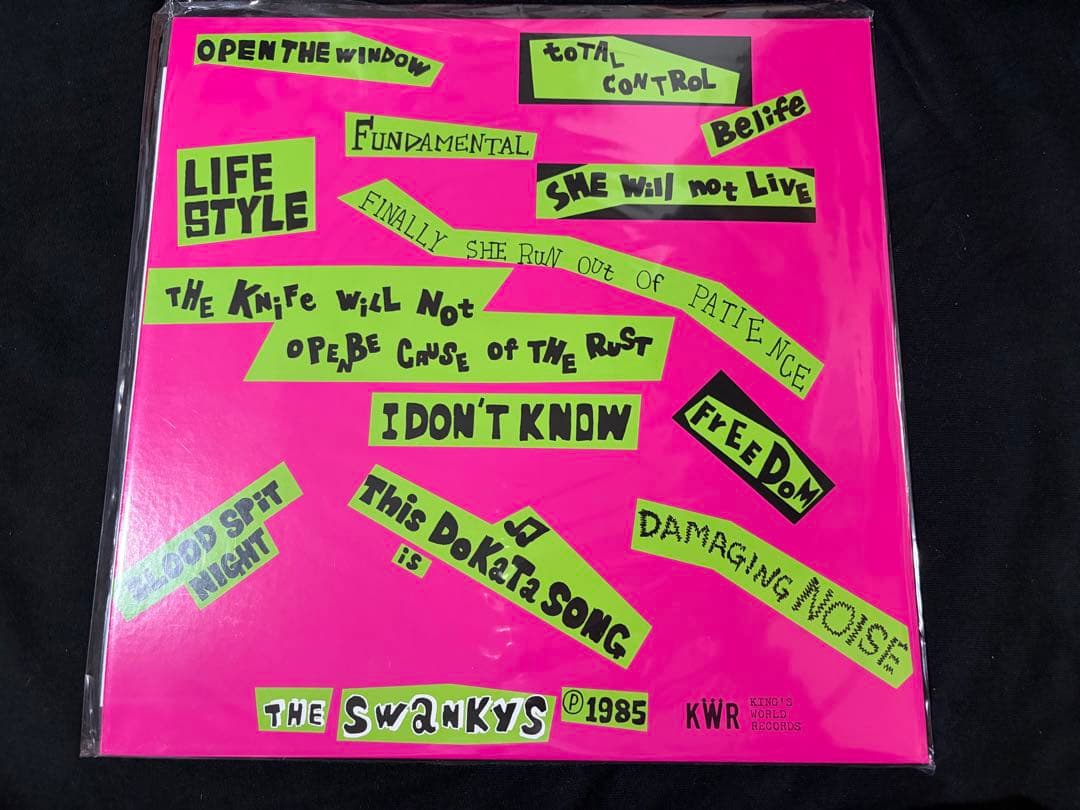 OPEN THE WINDOW
toTAL
CONTROL
Belife
FUNDAMENTAL
LIFE
STYLE
SHE Will not LivE
FINALLY SHE RuN OUt Of PATIENCE
THE KNiFe WiLL Not
OPENBE CAUSE Of THE RuST
I DON'T KNOW
FrEEDoM
BLOOD SPiT
NIGHT
THis DoKaTa SONG
is
DAMAGING NOISE
THE SWaNKYS ℗1985
KWR
KING'S
WORLD
RECORDS